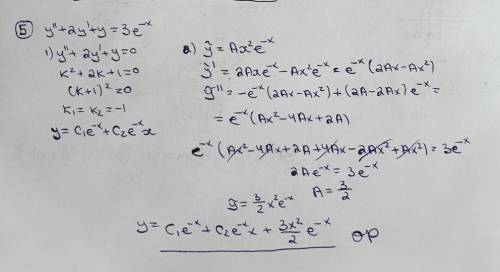 ⑤ y''+2y'+y=3e^{-x}
1) y''+2y'+y=0
k²+2k+1=0
(k+1)²=0
k₁=k₂=-1
y=C₁e^{-x}+C₂e^{-x}x
2) ỹ=Ax²e^{-x}
ỹ'=2Axe^{-x}-Ax²e^{-x}=e^{-x}(2Ax-Ax²)
ỹ''=-e^{-x}(2Ax-Ax²)+(2A-2Ax)e^{-x}=
=e^{-x}(Ax²-4Ax+2A)
e^{-x}(Ax²-4Ax+2A+4Ax-2Ax²+Ax²)=3e^{-x}
2Ae^{-x}=3e^{-x}
A=3/2
ỹ=3/2x²e^{-x}
y=C₁e^{-x}+C₂e^{-x}x+3x²/2 e^{-x} ор